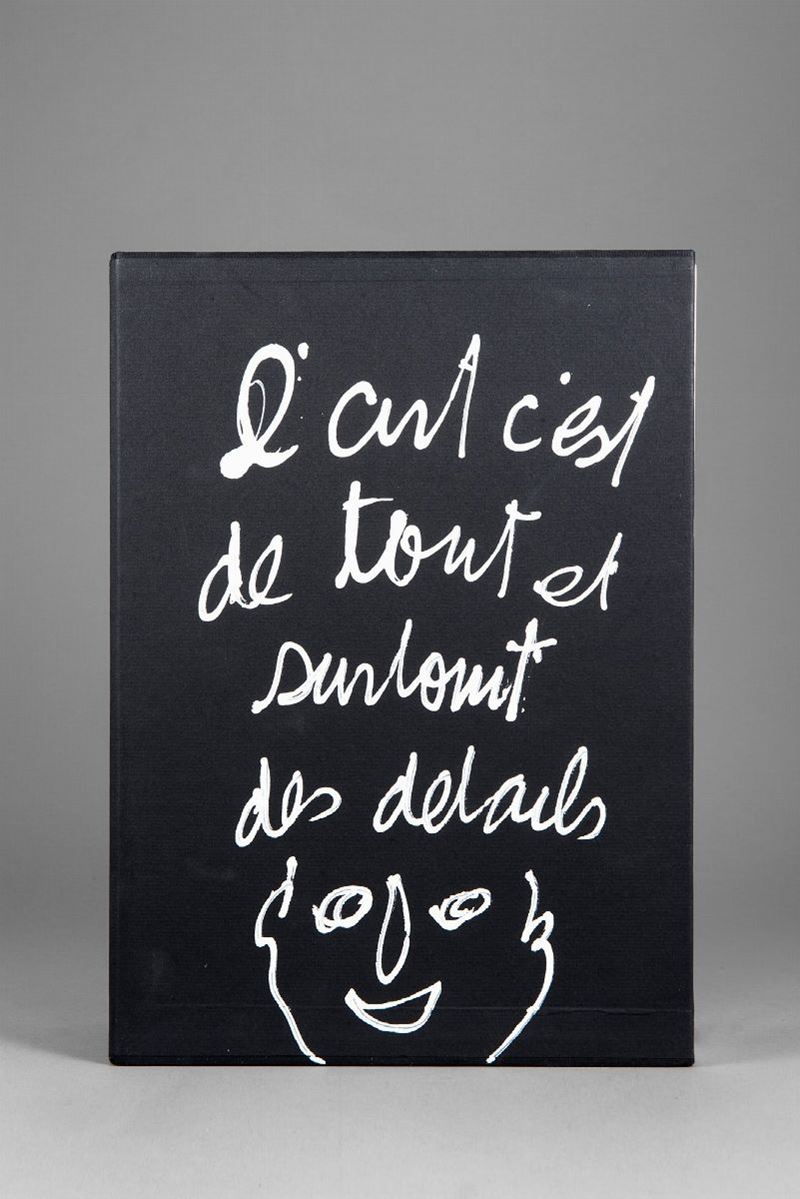 l'art c'est
de tout et
surtout
des details